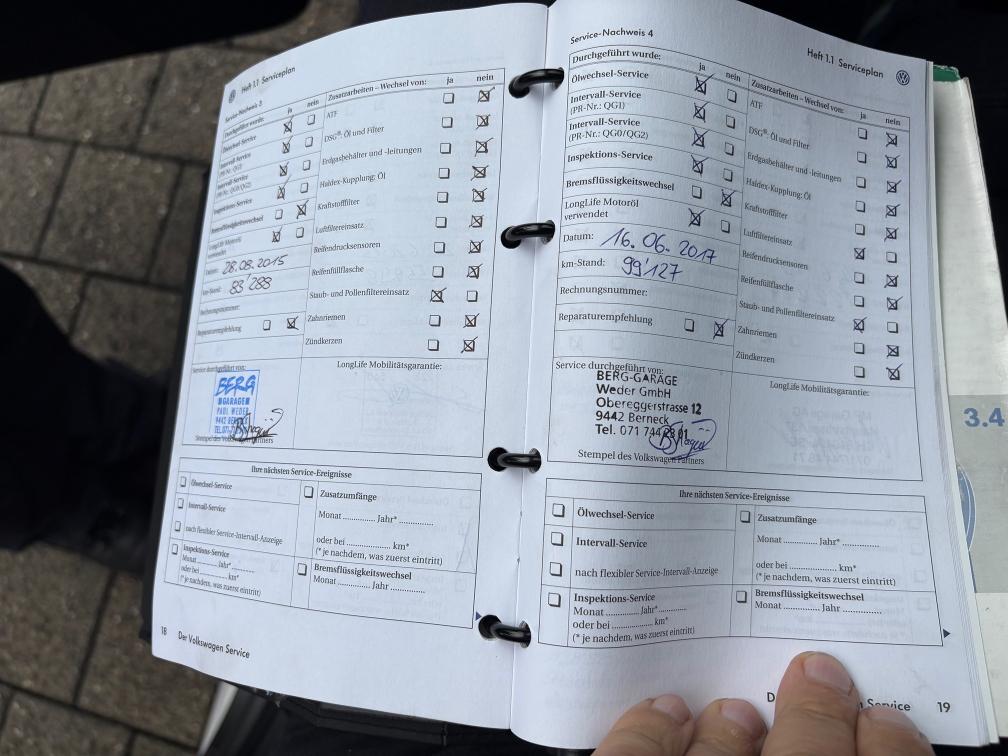 Heft 1.1 Serviceplan
Service-Nachweis 3
Durchgeführt wurde: ja nein
Ölwechsel-Service
Intervall-Service
(PR-Nr.: QG1)
Intervall-Service
(PR-Nr.: QG0/QG2)
Inspektions-Service
Bremsflüssigkeitswechsel
LongLife Motoröl
verwendet
Datum: 28.08.2015
km-Stand: 83'288
Rechnungsnummer:
Reparaturempfehlung
Zusatzarbeiten – Wechsel von: ja nein
ATF
DSG®: Öl und Filter
Erdgasbehälter und -leitungen
Haldex-Kupplung: Öl
Kraftstofffilter
Luftfiltereinsatz
Reifendrucksensoren
Reifenfüllflasche
Staub- und Pollenfiltereinsatz
Zahnriemen
Zündkerzen
Service durchgeführt von:
BERG
GARAGE
PAUL WEDER
9442 BERNECK
TEL. 071
Stempel des Volkswagen Partners
LongLife Mobilitätsgarantie:
Ihre nächsten Service-Ereignisse
Ölwechsel-Service
Intervall-Service
nach flexibler Service-Intervall-Anzeige
Inspektions-Service
Monat ........... Jahr* ...........
oder bei ........... km*
(* je nachdem, was zuerst eintritt)
Zusatzumfänge
Monat ........... Jahr* ...........
oder bei ........... km*
(* je nachdem, was zuerst eintritt)
Bremsflüssigkeitswechsel
Monat ........... Jahr ...........
18 Der Volkswagen Service
Service-Nachweis 4
Heft 1.1 Serviceplan
Durchgeführt wurde: ja nein
Ölwechsel-Service
Intervall-Service
(PR-Nr.: QG1)
Intervall-Service
(PR-Nr.: QG0/QG2)
Inspektions-Service
Bremsflüssigkeitswechsel
LongLife Motoröl
verwendet
Datum: 16.06.2017
km-Stand: 99'127
Rechnungsnummer:
Reparaturempfehlung
Zusatzarbeiten – Wechsel von: ja nein
ATF
DSG®: Öl und Filter
Erdgasbehälter und -leitungen
Haldex-Kupplung: Öl
Kraftstofffilter
Luftfiltereinsatz
Reifendrucksensoren
Reifenfüllflasche
Staub- und Pollenfiltereinsatz
Zahnriemen
Zündkerzen
Service durchgeführt von:
BERG-GARAGE
Weder GmbH
Obereggerstrasse 12
9442 Berneck
Tel. 071 744 28 01
Stempel des Volkswagen Partners
LongLife Mobilitätsgarantie:
Ihre nächsten Service-Ereignisse
Ölwechsel-Service
Intervall-Service
nach flexibler Service-Intervall-Anzeige
Inspektions-Service
Monat ........... Jahr* ...........
oder bei ........... km*
(* je nachdem, was zuerst eintritt)
Zusatzumfänge
Monat ........... Jahr* ...........
oder bei ........... km*
(* je nachdem, was zuerst eintritt)
Bremsflüssigkeitswechsel
Monat ........... Jahr ...........
Service 19
3.4